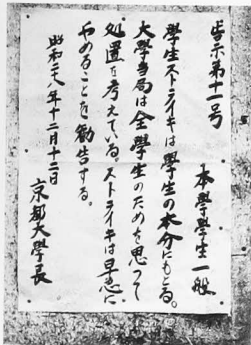 告示第十一号
本學學生一般
學生ストライキは學生の本分にもとる。
大學当局は全學生のためを思つて
処置を考えている。ストライキは早急に
やめることを勧告する。
昭和二八年十二月十二日
京都大學長